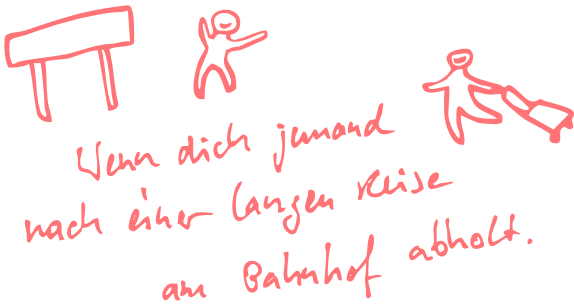 Wenn dich jemand
nach einer langen Reise
am Bahnhof abholt.